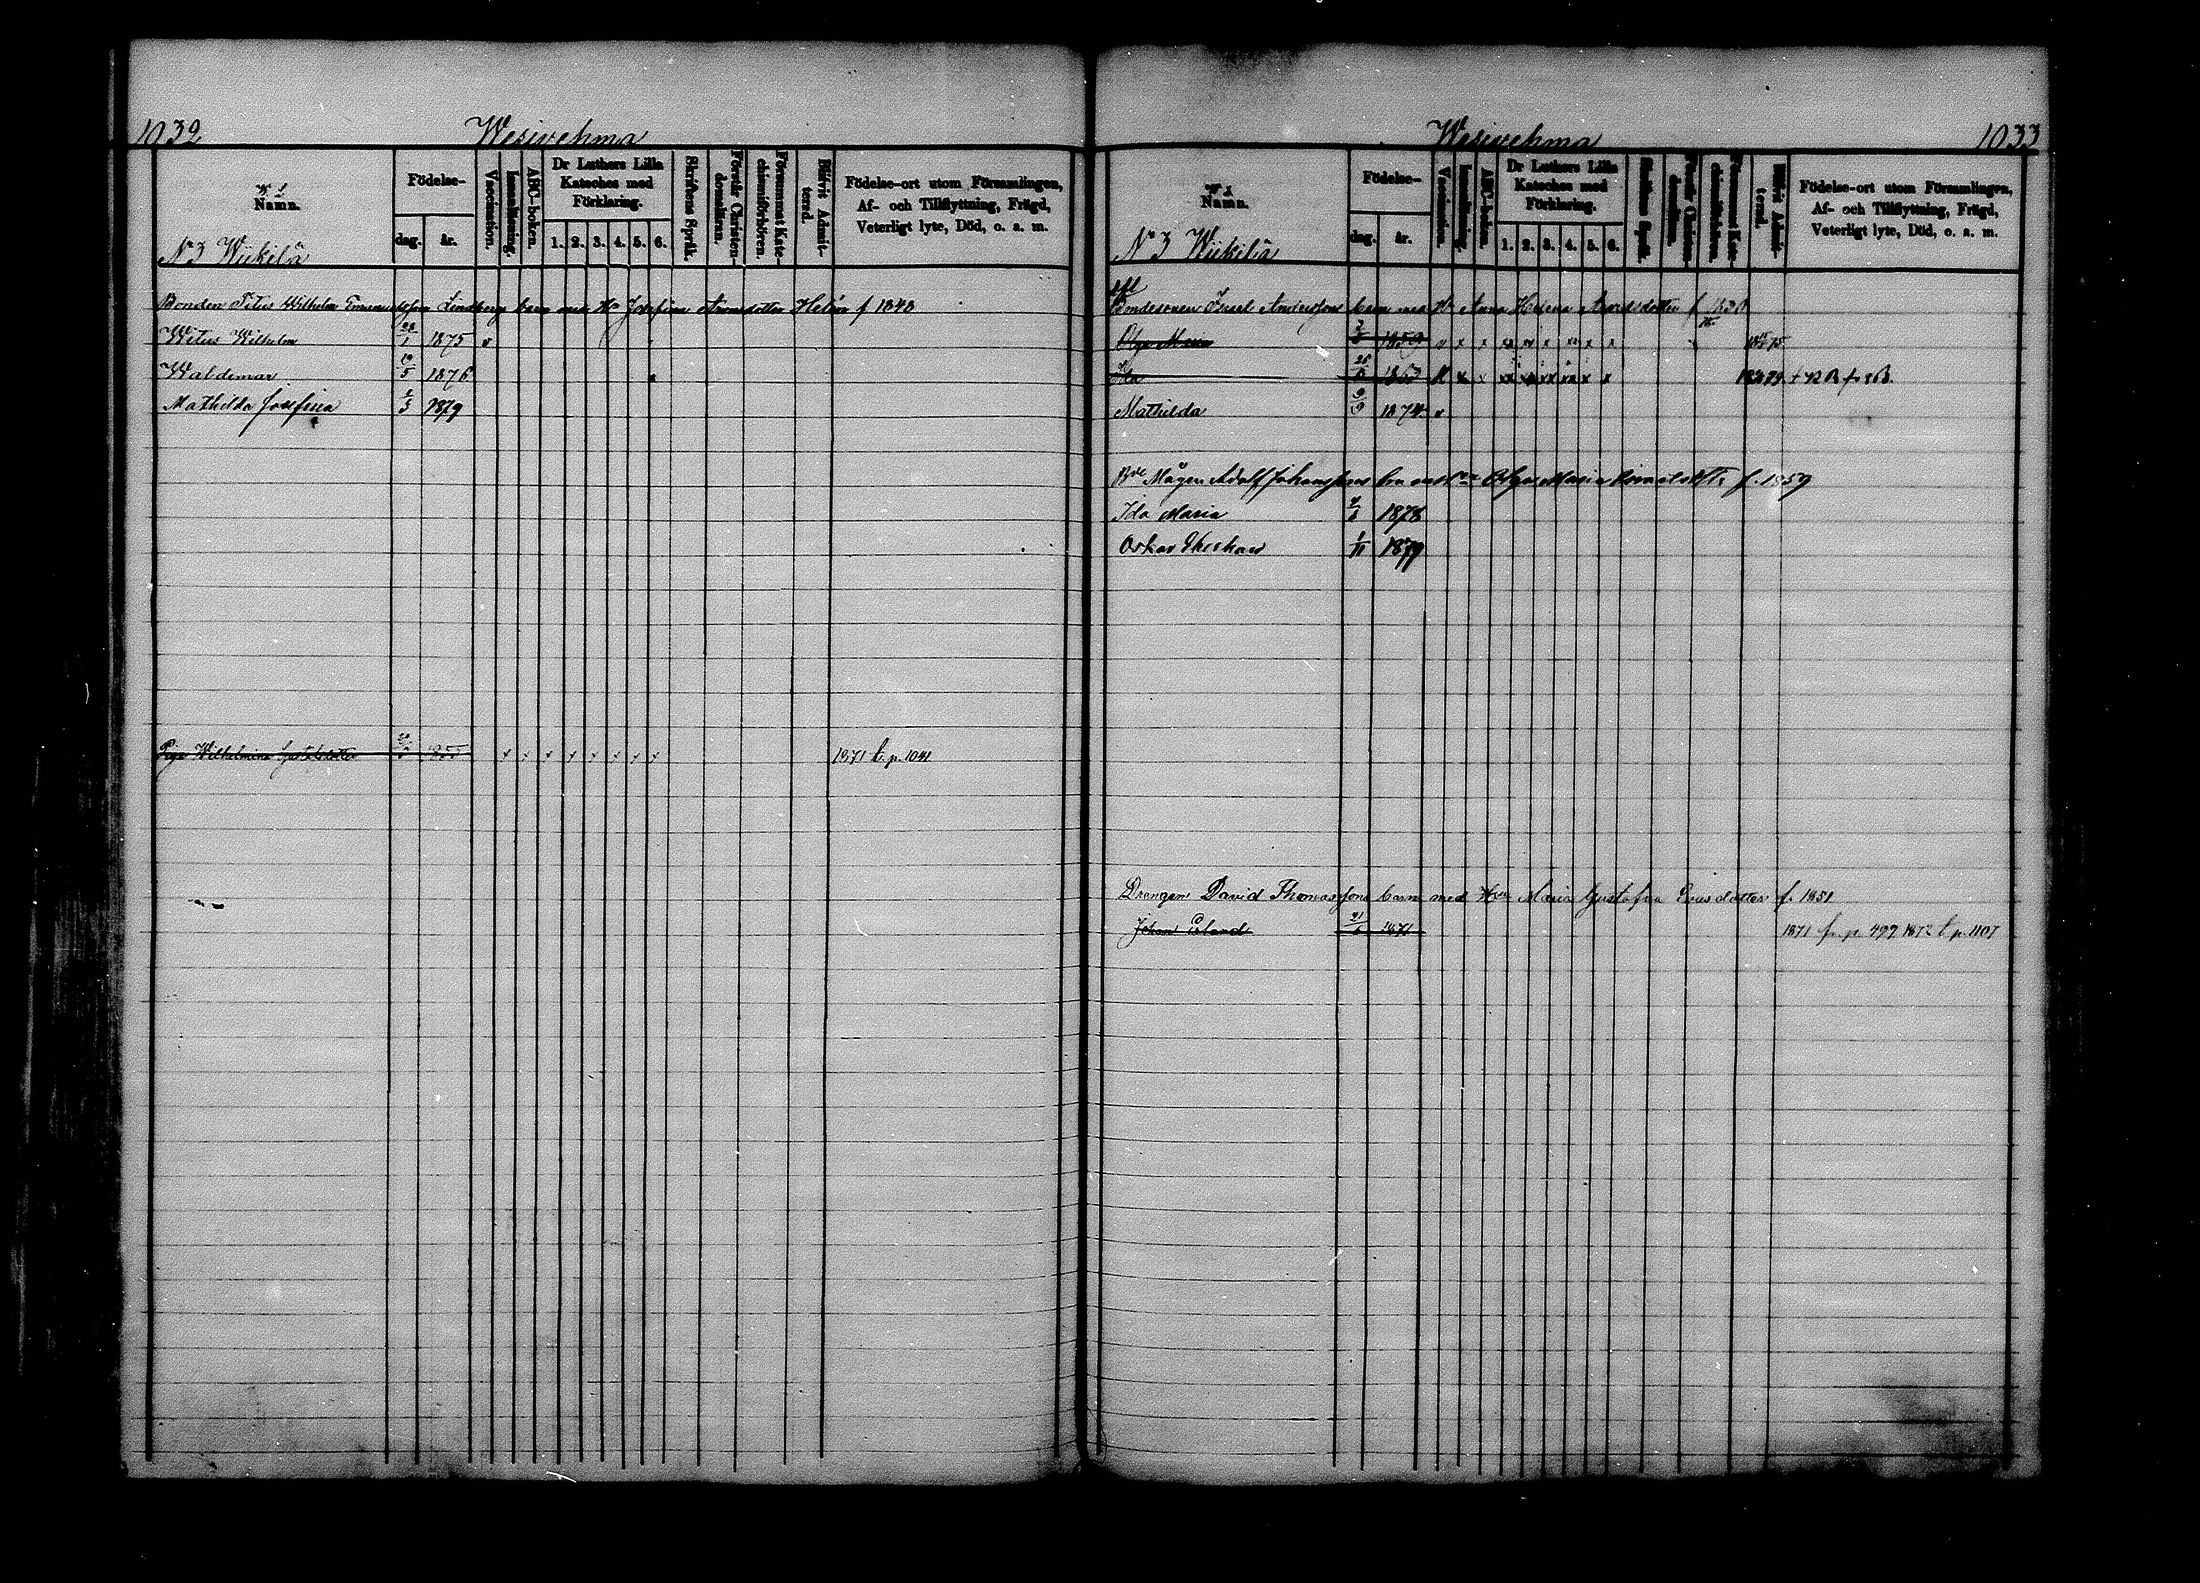 1032 Wesivehma
Namn.
Födelse-
dag. år.
Vaccination.
Innanläsning.
ABC-boken.
Dr Luthers Lilla Kateches med Förklaring.
1. 2. 3. 4. 5. 6.
Skriftens Språk.
Förstår Christendomsläran.
Försummat Katechismiförhören.
Blifvit Admitterad.
Födelse-ort utom Församlingen, Af- och Tillflyttning, Frägd, Veterligt lyte, Död, o. s. m.
N 3 Wiikilä
Bonden Titus Wilhelm Lindberg barn med Hu Josefina Helen f 1848
Witus Wilhelm 28/1 1875 v
Waldemar 19/5 1876
Mathilda Josefina 1879
Piga Wilhelmina Gustafsdotter x x x x x x x x 1871 t. p. 1041
Wesivehma 1033
Namn.
Födelse-
dag. år.
Vaccination.
Innanläsning.
ABC-boken.
Dr Luthers Lilla Kateches med Förklaring.
1. 2. 3. 4. 5. 6.
Skriftens Språk.
Förstår Christendomsläran.
Försummat Katechismiförhören.
Blifvit Admitterad.
Födelse-ort utom Församlingen, Af- och Tillflyttning, Frägd, Veterligt lyte, Död, o. s. m.
N 3 Wiikilä
Bondesonen Israel Anderssons barn med Hu Anna Helena f 1830
Olga Maria 1859
Ida 1863
Mathilda 9/9 1874 v
Mågen Adolf Johanssons Olga Maria f. 1859
Ida Maria 1878
Oskar 1/11 1879
Drängen David Thomassons barn med Hu Maria Gustafva Evasdotter f. 1851
Johan 1871 1871 fr. p. 499 1872 t. p. 1107